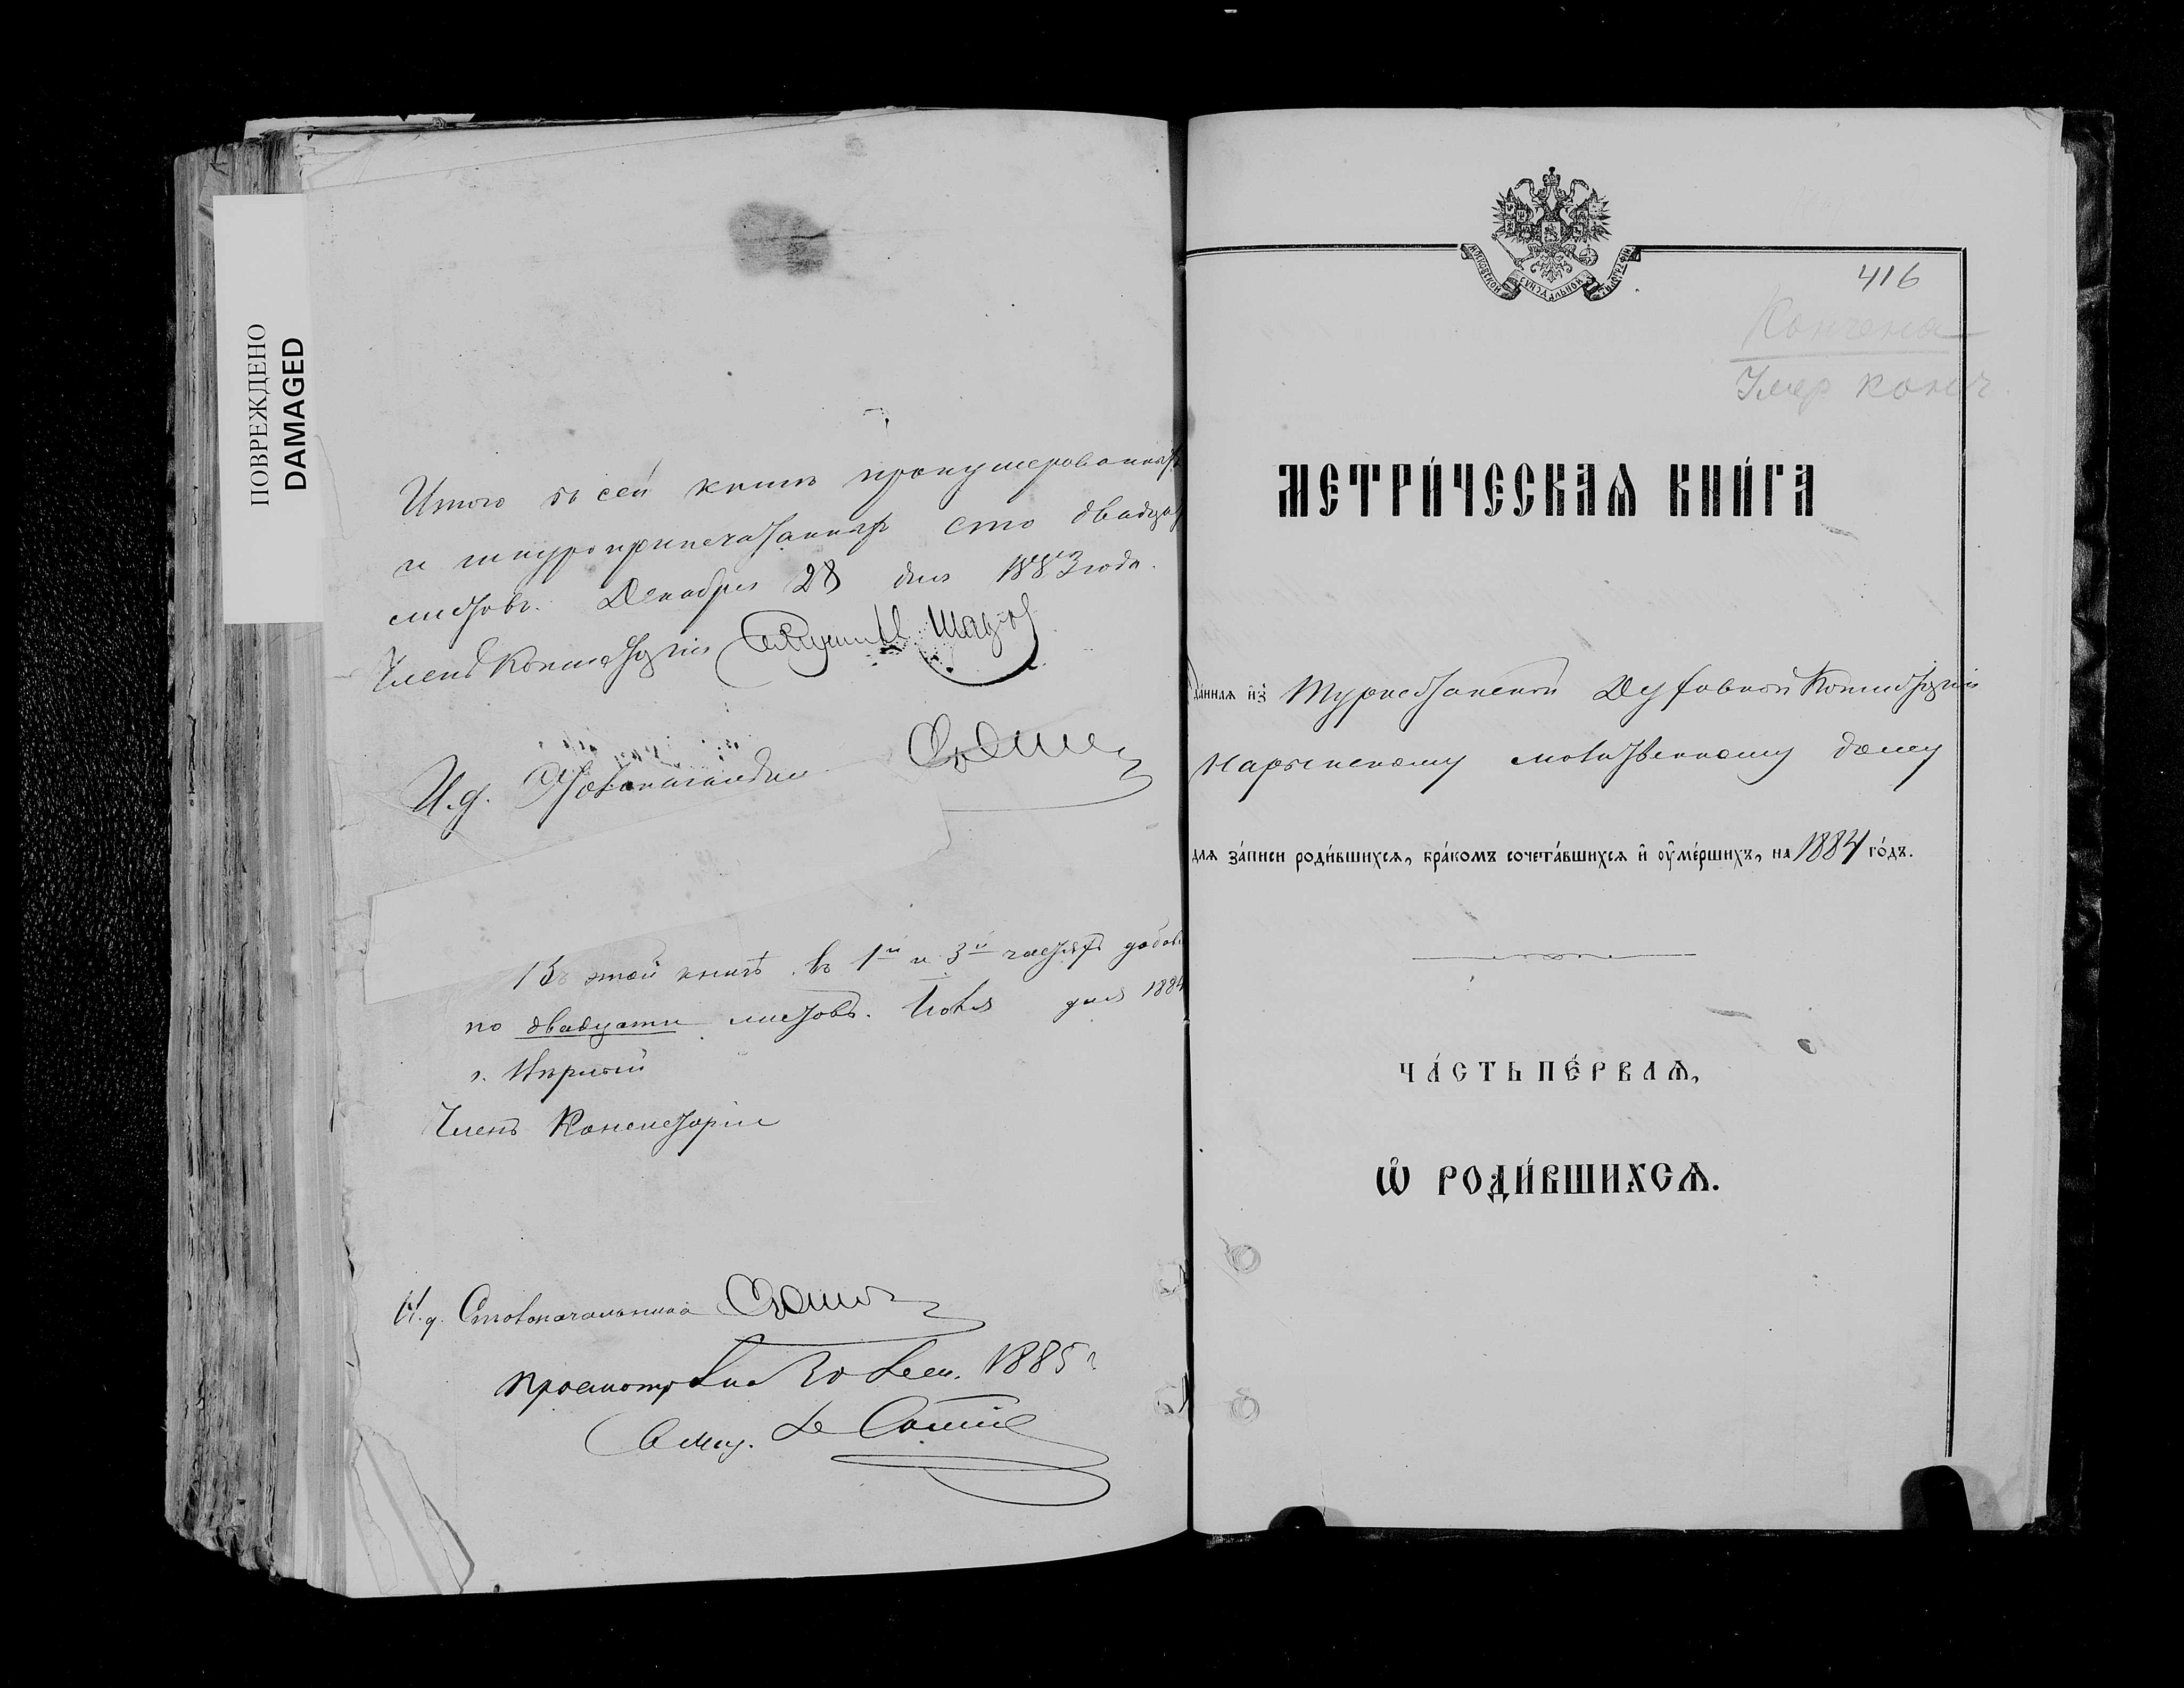 ПОВРЕЖДЕНО
DAMAGED
Итого въ сей книгѣ пронумерованныхъ
и шнуроприпечатанныхъ сто двадцать
листовъ. Декабря 28 дня 1883 года.
Членъ Консисторіи
И. д. Столоначальника
Въ этой книгѣ въ 1й и 3й частяхъ добав
по двадцати листовъ. Іюля дня 1884
г. Вѣрный
Членъ Консисторіи
И. д. Столоначальника
1885 г
МОСКОВСКОЙ СѴНОДАЛЬНОЙ ТИПОГРАФІИ
416
Кончена
Умер конч.
МЕТРИ́ЧЕСКАѦ КНИ́ГА
да́нная и҆з̾ Туркестанской Духовной Консисторіи
Нарынскому молитвенному дому
для за́писи роди́вшихся, бра́комъ сочета́вшихся и҆ ᲂу҆ме́ршихъ, на 1884 го́дъ.
ЧА́СТЬ ПЕ́РВАѦ,
Ѽ РОДИ́ВШИХСѦ.